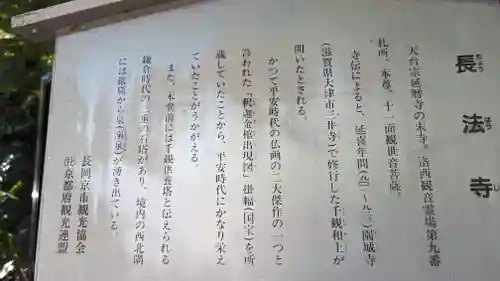 長法寺
たんぼうじ
天台宗延暦寺の末寺。洛西観音霊場第九番
札所。本尊、十一面観世音菩薩。
寺伝によると、延喜年間(九〇一〜九二三)園城寺
(滋賀県大津市三井寺)で修行した千観和上が
開いたとされる。
かつて平安時代の仏画の二大傑作の一つと
言われた「釈迦金棺出現図」掛幅(国宝)を所
蔵していたことから、平安時代にかなり栄え
ていたことがうかがえる。
また、本堂前には千観供養塔と伝えられる
鎌倉時代の三重の石塔があり、境内の西北隅
には巌窟から泉(瀬泉)が湧き出ている。
長岡京市観光協会
(社)京都府観光連盟